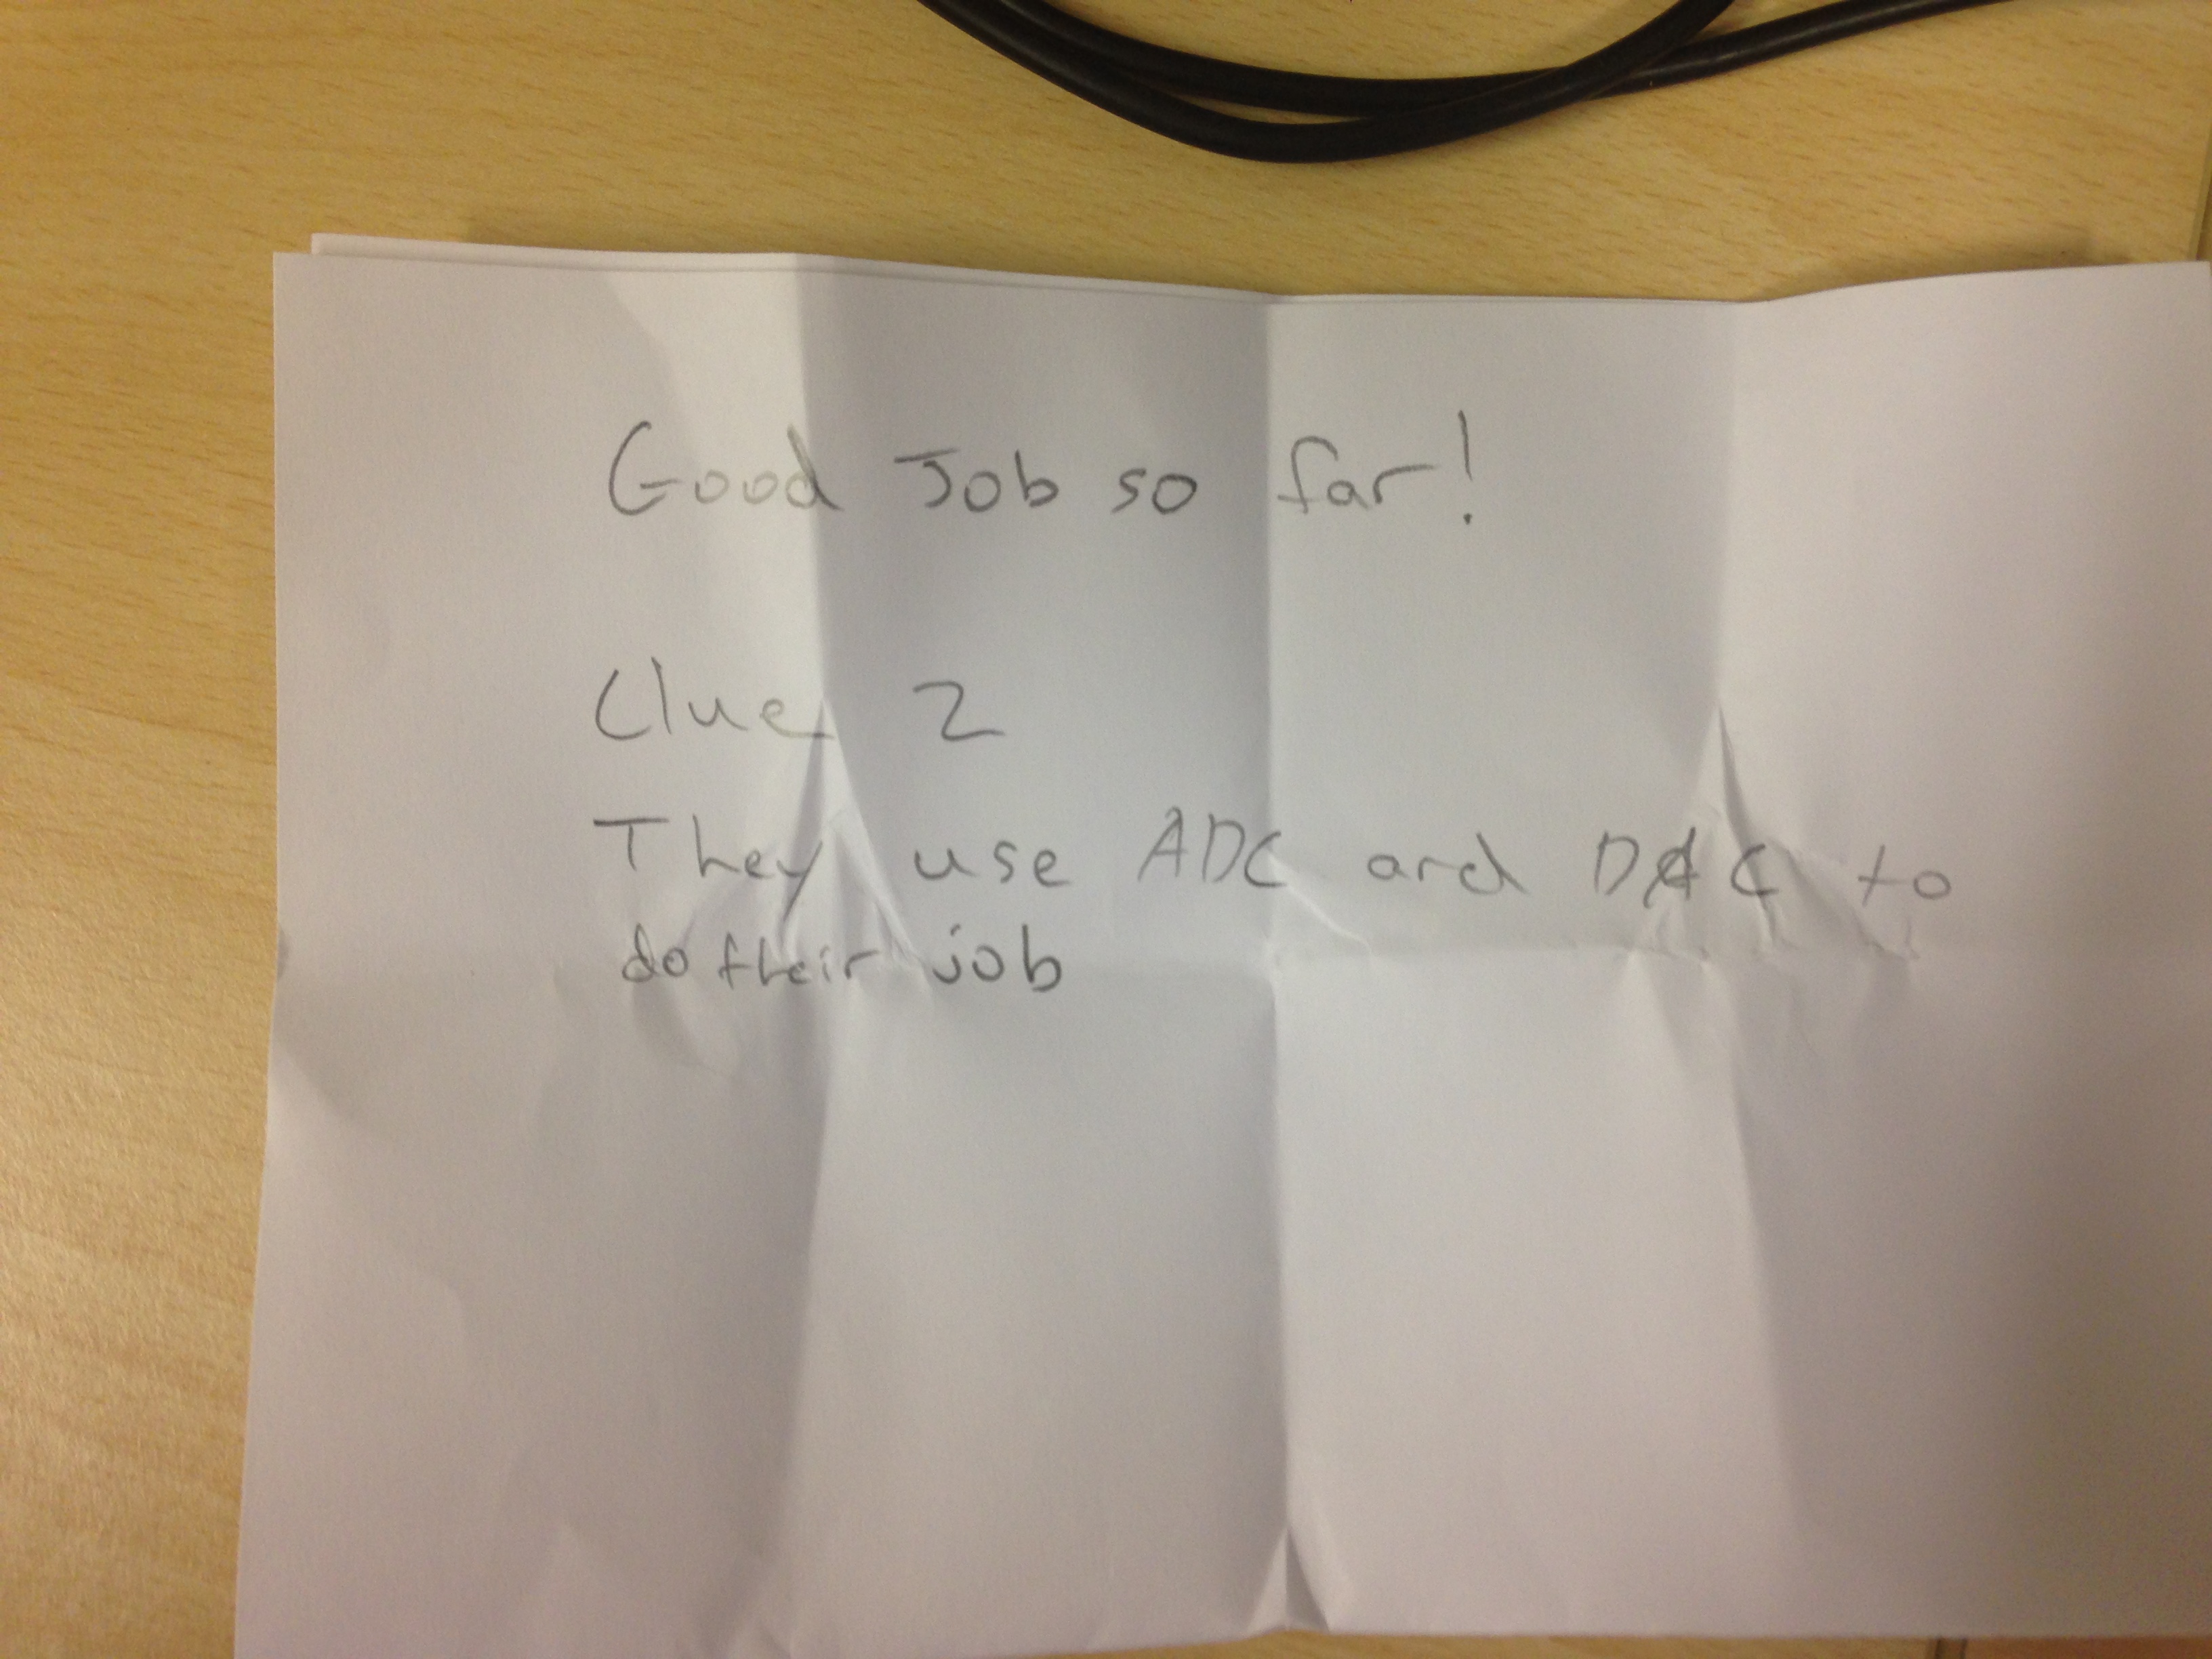 Good Job so far!
Clue 2
They use ADC and DAC to
do their job